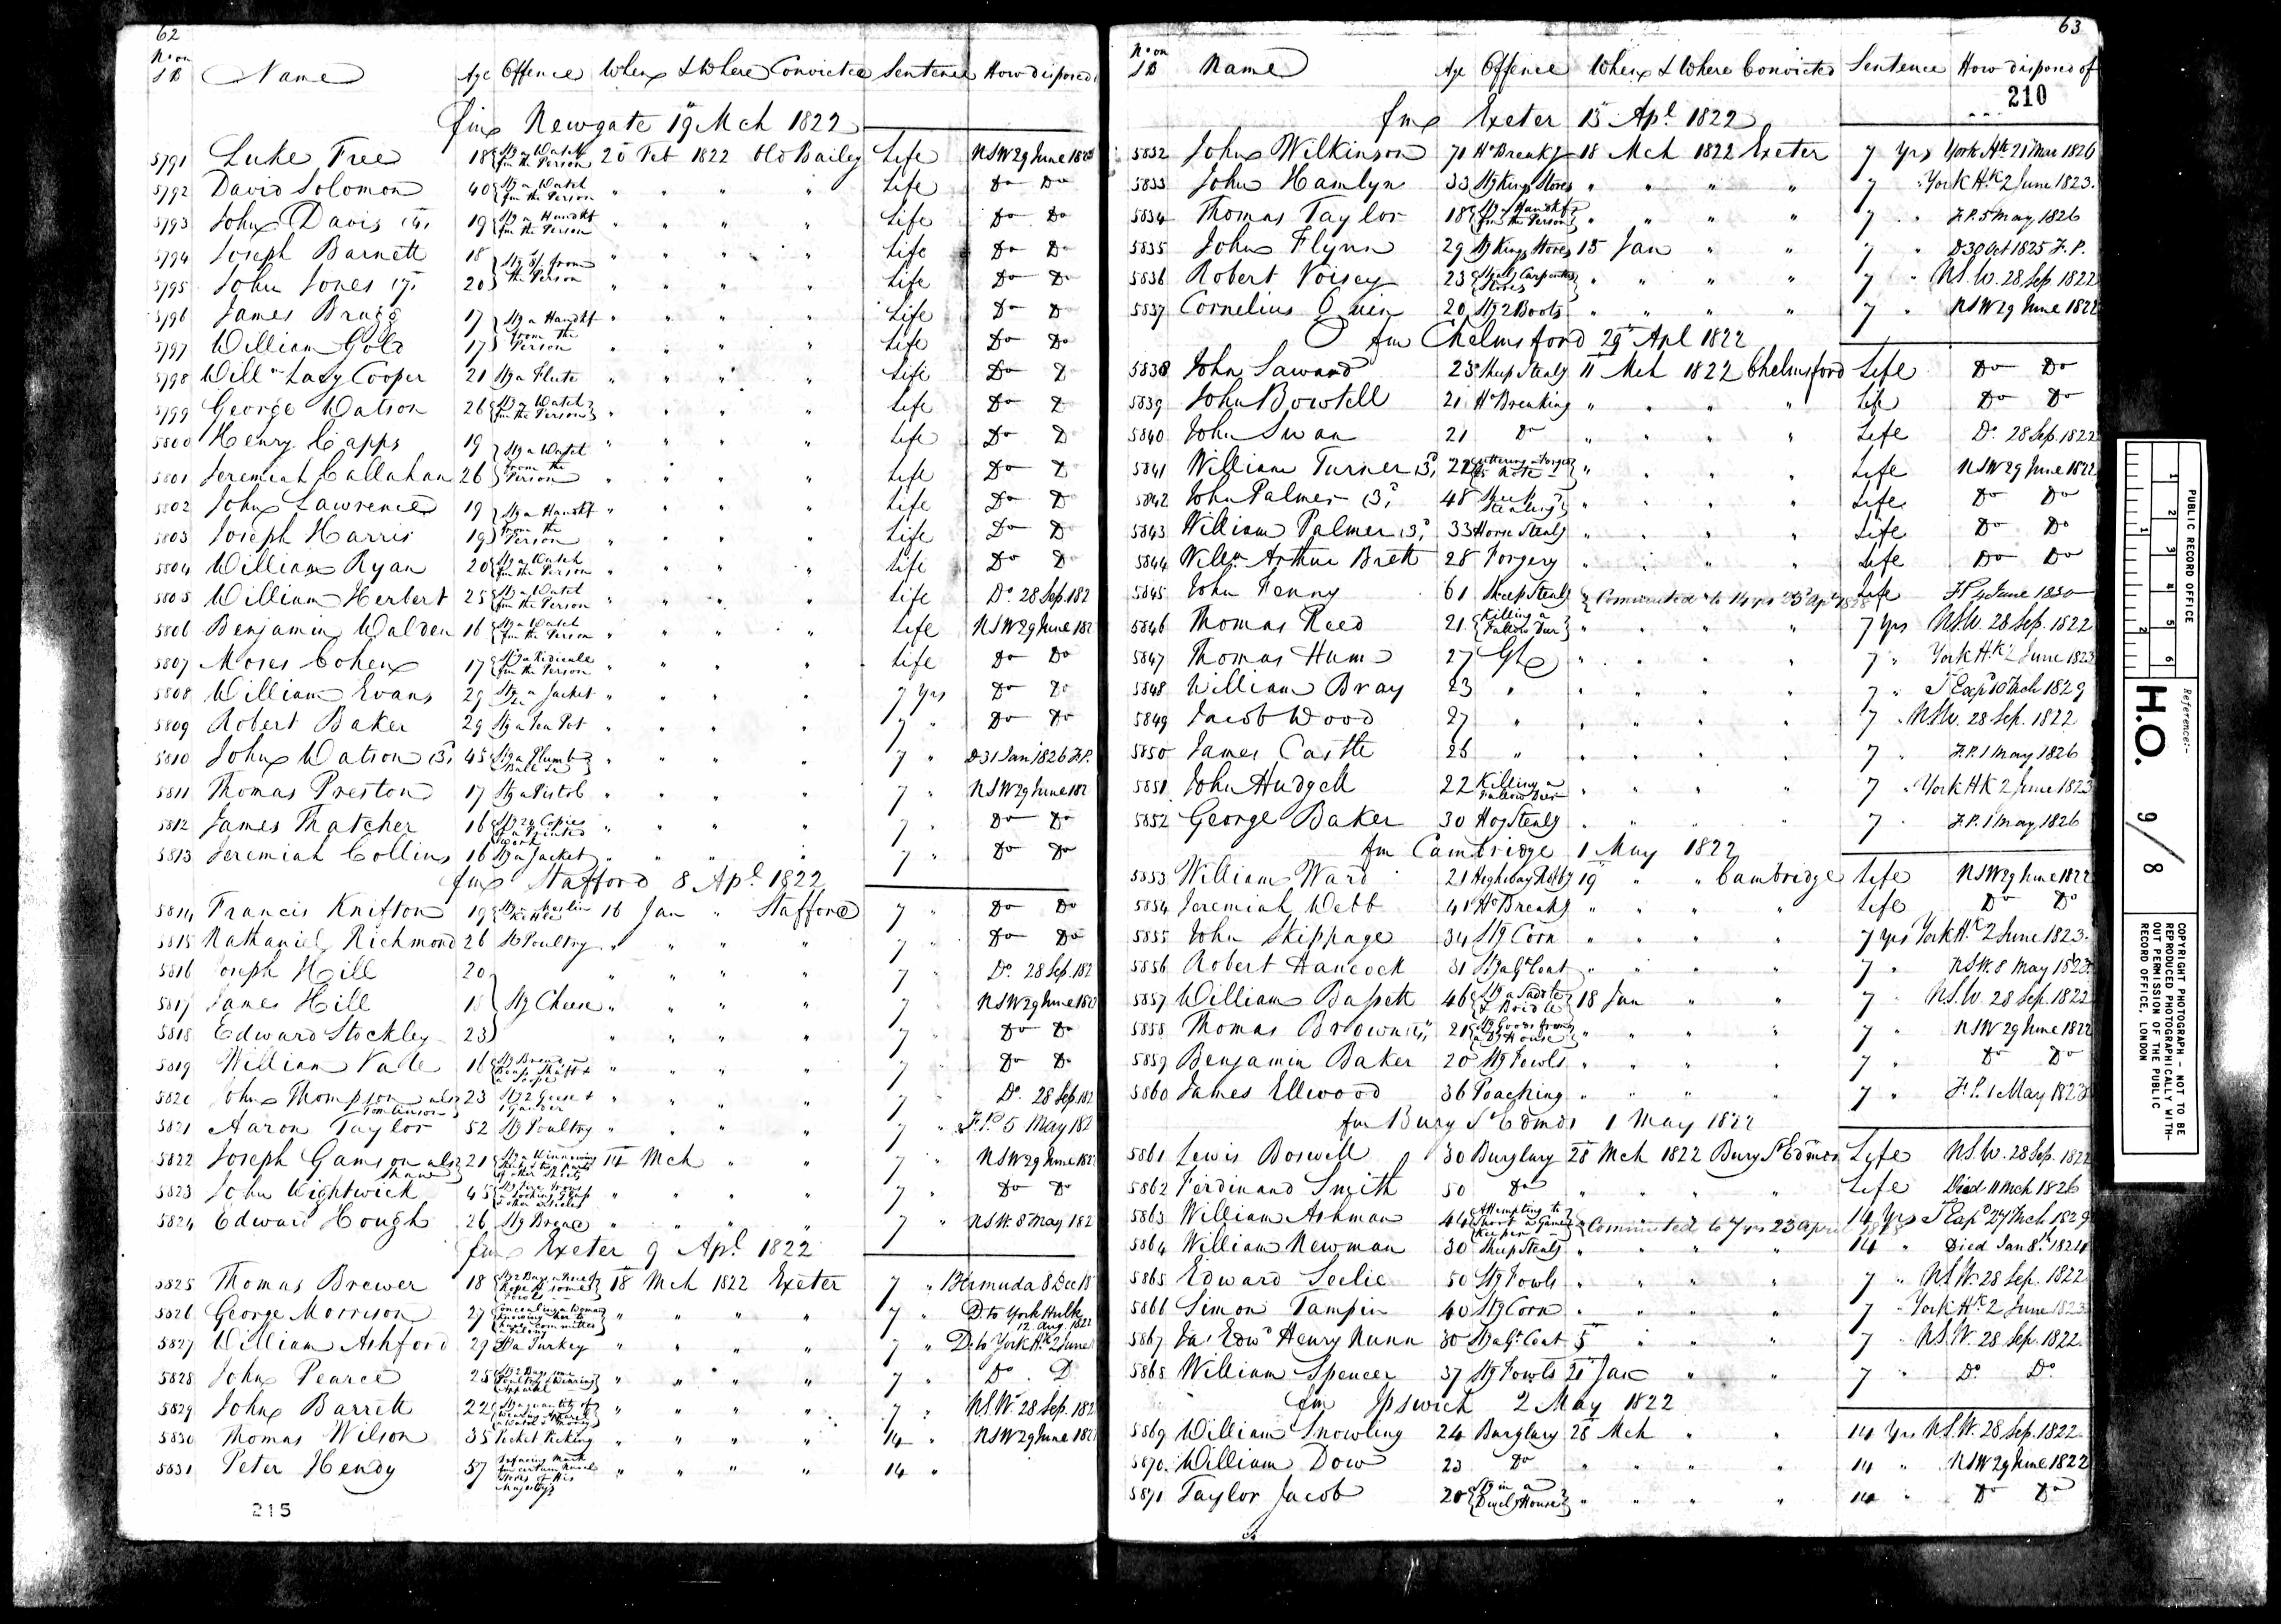 62
No on
J B Name Age Offence When & Where Convicted Sentence How disposed
fm Newgate 19 Mch 1822
5791 Luke Free 18 Stg a Watch fm the Person 20 Feb 1822 Old Bailey Life NSW 29 June 182
5792 David Solomon 40 Stg a Watch fm the Person " " " " Life Do Do
5793 John Davis 19 Stg a Handkf fm the Person " " " " Life Do Do
5794 Joseph Barnett 18 Stg from the Person " " " " Life Do Do
5795 John Jones 20 " " " " Life Do Do
5796 James Bragg 17 Stg a Handkf from the Person " " " " Life Do Do
5797 William Gold 17 " " " " Life Do Do
5798 Willm Lacy Cooper 21 Stg a Flute " " " " Life Do D
5799 George Watson 26 Stg a Watch fm the Person " " " " Life Do D
5800 Henry Capps 19 Stg a Watch from the Person " " " " Life Do D
5801 Jeremiah Callahan 26 " " " " Life Do D
5802 John Lawrence 19 Stg a Handkf from the Person " " " " Life Do D
5803 Joseph Harris 19 " " " " Life Do D
5804 William Ryan 20 Stg a Watch fm the Person " " " " Life Do D
5805 William Herbert 25 Stg a Watch fm the Person " " " " Life Do 28 Sep. 182
5806 Benjamin Walden 16 Stg a Watch fm the Person " " " " Life NSW 29 June 182
5807 Moses Cohen 17 Stg a Ridicule fm the Person " " " " Life Do Do
5808 William Evans 29 Stg a Jacket &c " " " " 7 yrs Do Do
5809 Robert Baker 29 Stg a Tea Pot " " " " 7 " Do Do
5810 John Watson (3) 45 Stg a Plumb " " " " 7 " D 31 Jan 1826 F.P.
5811 Thomas Preston 17 Stg a Pistol " " " " 7 " NSW 29 June 182
5812 James Thatcher 16 Stg 20 Copies of a Printed Work " " " " 7 " Do Do
5813 Jeremiah Collins 16 Stg a Jacket " " " " 7 " Do Do
fm Stafford 8 Apl 1822
5814 Francis Knifton 19 Stg a Kettle 16 Jan " Stafford 7 " Do Do
5815 Nathaniel Richmond 26 St Poultry " " " " 7 " Do Do
5816 Joseph Hill 20 Stg Cheese " " " " 7 Do 28 Sep. 182
5817 James Hill 18 " " " " 7 NSW 29 June 182
5818 Edward Stockley 23 " " " " 7 " Do Do
5819 William Vale 16 " " " " 7 " Do Do
5820 John Thompson als Tomlinson 23 Stg 2 Geese & 1 Gander " " " " 7 Do 28 Sep 182
5821 Aaron Taylor 52 Stg Poultry " " " " 7 " F.P. 5 May 182
5822 Joseph Gamson als Shaw 21 Stg a Winnowing 14 Mch " " 7 " NSW 29 June 182
5823 John Wightwick 45 " " " " 7 " Do Do
5824 Edward Hough 26 Stg Bread " " " " 7 " NSW. 8 May 182
fm Exeter 9 Apl 1822
5825 Thomas Brewer 18 18 Mch 1822 Exeter 7 " Bermuda 8 Dec 18
5826 George Morrison 27 " " " " 7 " D. to York Hulk 12. Aug. 1822
5827 William Ashford 29 St a Turkey " " " " 7 " D. to York Hk 2 June
5828 John Pearce 25 " " " " 7 " Do D
5829 John Barrett 22 Stg a quantity of Wearing Apparel " " " " 7 " N.S.W. 28 Sep. 182
5830 Thomas Wilson 35 Pocket Picking " " " " 14 " NSW 29 June 182
5831 Peter Hendy 57 Defacing Mark Stores of His Majestys " " " " 14 "
215
63
No on
J B Name Age Offence When & Where Convicted Sentence How disposed of
210
fm Exeter 15 Apl 1822
5832 John Wilkinson 71 Ho Breakg 18 Mch 1822 Exeter 7 Yrs York Hk 21 Mar 1826
5833 John Hamlyn 33 Stg Kings Stores " " " " 7 " York Hk 2 June 1823.
5834 Thomas Taylor 18 Stg a Handkf fm the Person " " " " 7 " F.P. 5 May 1826
5835 John Flynn 29 Stg Kings Stores 15 Jan " " 7 " D 30 Oct 1825 F.P.
5836 Robert Voisey 23 Stealg Carpenters Stores " " " " 7 " N.S.W. 28 Sep. 1822
5837 Cornelius Quin 20 Stg 2 Boots " " " " 7 " NSW 29 June 1822
fm Chelmsford 29 Apl 1822
5838 John Saward 23 Sheep Stealg 11 Mch 1822 Chelmsford Life Do Do
5839 John Bowtell 21 Ho Breaking " " " " Life Do Do
5840 John Swan 21 Do " " " " Life Do 28 Sep. 1822
5841 William Turner (3) 22 Uttering a Forged Bk Note " " " " Life NSW 29 June 1822
5842 John Palmer (3) 48 Sheep Stealing " " " " Life Do Do
5843 William Palmer (3) 33 Horse Stealg " " " " Life Do Do
5844 Willm Arthur Brett 28 Forgery " " " " Life Do Do
5845 John Fenny 61 Sheep Stealg Commuted to 14 yrs 23 Apl 1828 Life F.P. 4 June 1830
5846 Thomas Reed 21 Killing a Fallow Deer " " " " 7 yrs N.S.W. 28 Sep. 1822
5847 Thomas Hum 27 GL " " " " 7 " York Hk 2 June 1823
5848 William Bray 23 " " " " " 7 " T. Expd 10 Mch 1829
5849 Jacob Wood 27 " " " " " 7 " N.S.W. 28 Sep. 1822
5850 James Castle 26 " " " " " 7 " F.P. 1 May 1826
5851 John Hudgell 22 Killing a Fallow Deer " " " " 7 " York HK 2 June 1823
5852 George Baker 30 Hog Stealg " " " " 7 " F.P. 1 May 1826
fm Cambridge 1 May 1822
5853 William Ward 21 Highway Robby 19 " " Cambridge Life NSW 29 June 1822
5854 Jeremiah Webb 41 Ho Breakg " " " " Life Do Do
5855 John Skippage 34 Stg Corn " " " " 7 yrs York Hk 2 June 1823.
5856 Robert Hancock 31 Stg a Gt Coat " " " " 7 " N.S.W. 8 May 1823
5857 William Bassett 46 Stg a Saddle & Bridle 18 Jan " " 7 " N.S.W. 28 Sep. 1822
5858 Thomas Brown 21 Stg Goods from a Dg House " " " " 7 " NSW 29 June 1822
5859 Benjamin Baker 20 Stg Fowls " " " " 7 " Do Do
5860 James Ellwood 36 Poaching " " " " 7 " F.P. 1 May 1823
fm Bury St Edmds 1 May 1822
5861 Lewis Boswell 30 Burglary 28 Mch 1822 Bury St Edmds Life N.S.W. 28 Sep. 1822
5862 Ferdinand Smith 50 Do " " " " Life Died 11 Mch 1826
5863 William Ashman 44 Attempting to Shoot a Game Keeper Commuted to 7 yrs 23 April 1828 14 Yrs T. Expd 27 Mch 1829
5864 William Newman 30 Sheep Stealg " " " " 14 " Died Jan 8th 1824
5865 Edward Seelie 50 Stg Fowls " " " " 7 " N.S.W. 28 Sep. 1822
5866 Simon Tampin 40 Stg Corn " " " " 7 " York Hk 2 June 1823
5867 Jas Edwd Henry Nunn 30 Stg a Gt Coat 5 " " " 7 N.S.W. 28 Sep. 1822.
5868 William Spencer 37 Stg Fowls 21 Jan " " 7 " Do Do
fm Ipswich 2 May 1822
5869 William Snowling 24 Burglary 28 Mch " " 14 Yrs N.S.W. 28 Sep. 1822.
5870 William Dow 23 Do " " " " 14 " NSW 29 June 1822
5871 Taylor Jacob 20 Stg in a Dwelg House " " " " 14 " Do Do
PUBLIC RECORD OFFICE
1 2 3 4 5 6
1 2
Reference:-
H.O. 9/8
COPYRIGHT PHOTOGRAPH - NOT TO BE
REPRODUCED PHOTOGRAPHICALLY WITH-
OUT PERMISSION OF THE PUBLIC
RECORD OFFICE, LONDON